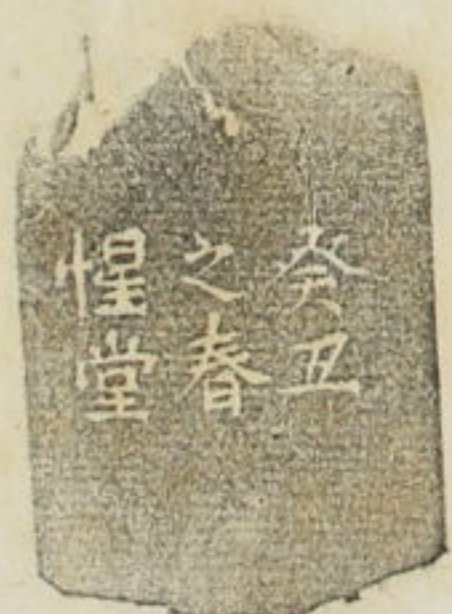 癸丑
之春
惺堂